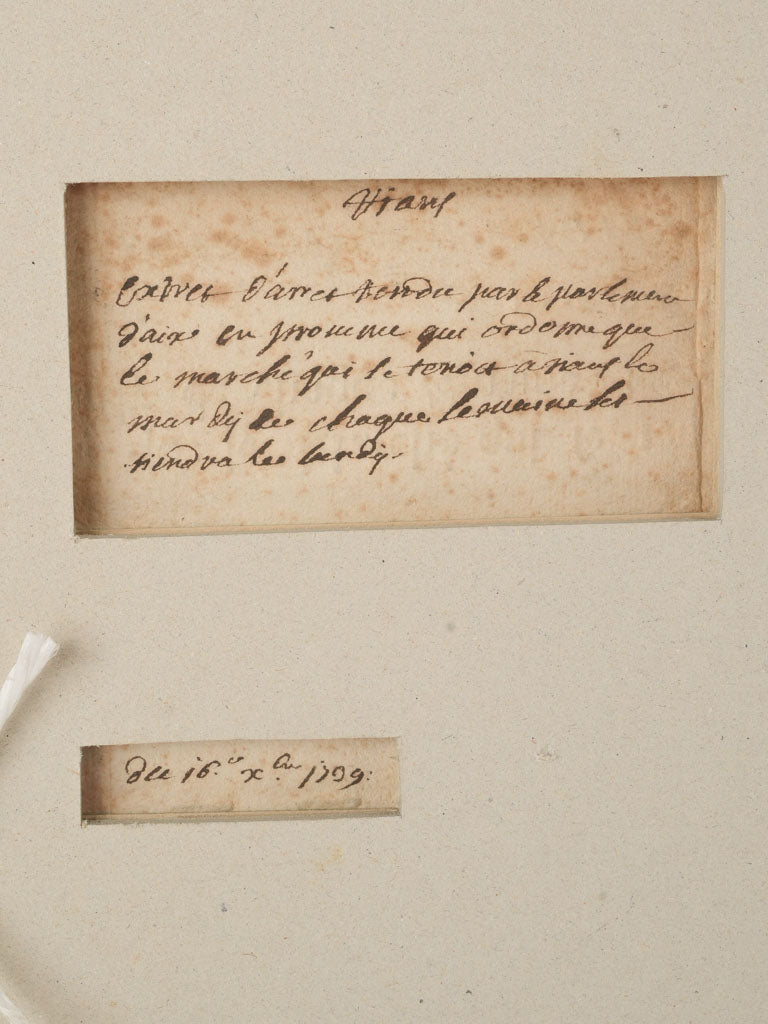 Rians
Extret d'arret rendu par le parlement
d'aix en provence qui ordonne que
le marché qui se tenoit a rians le
mardy de chaque semaine se
tiendra le lundy.
du 16.e xbre 1739.